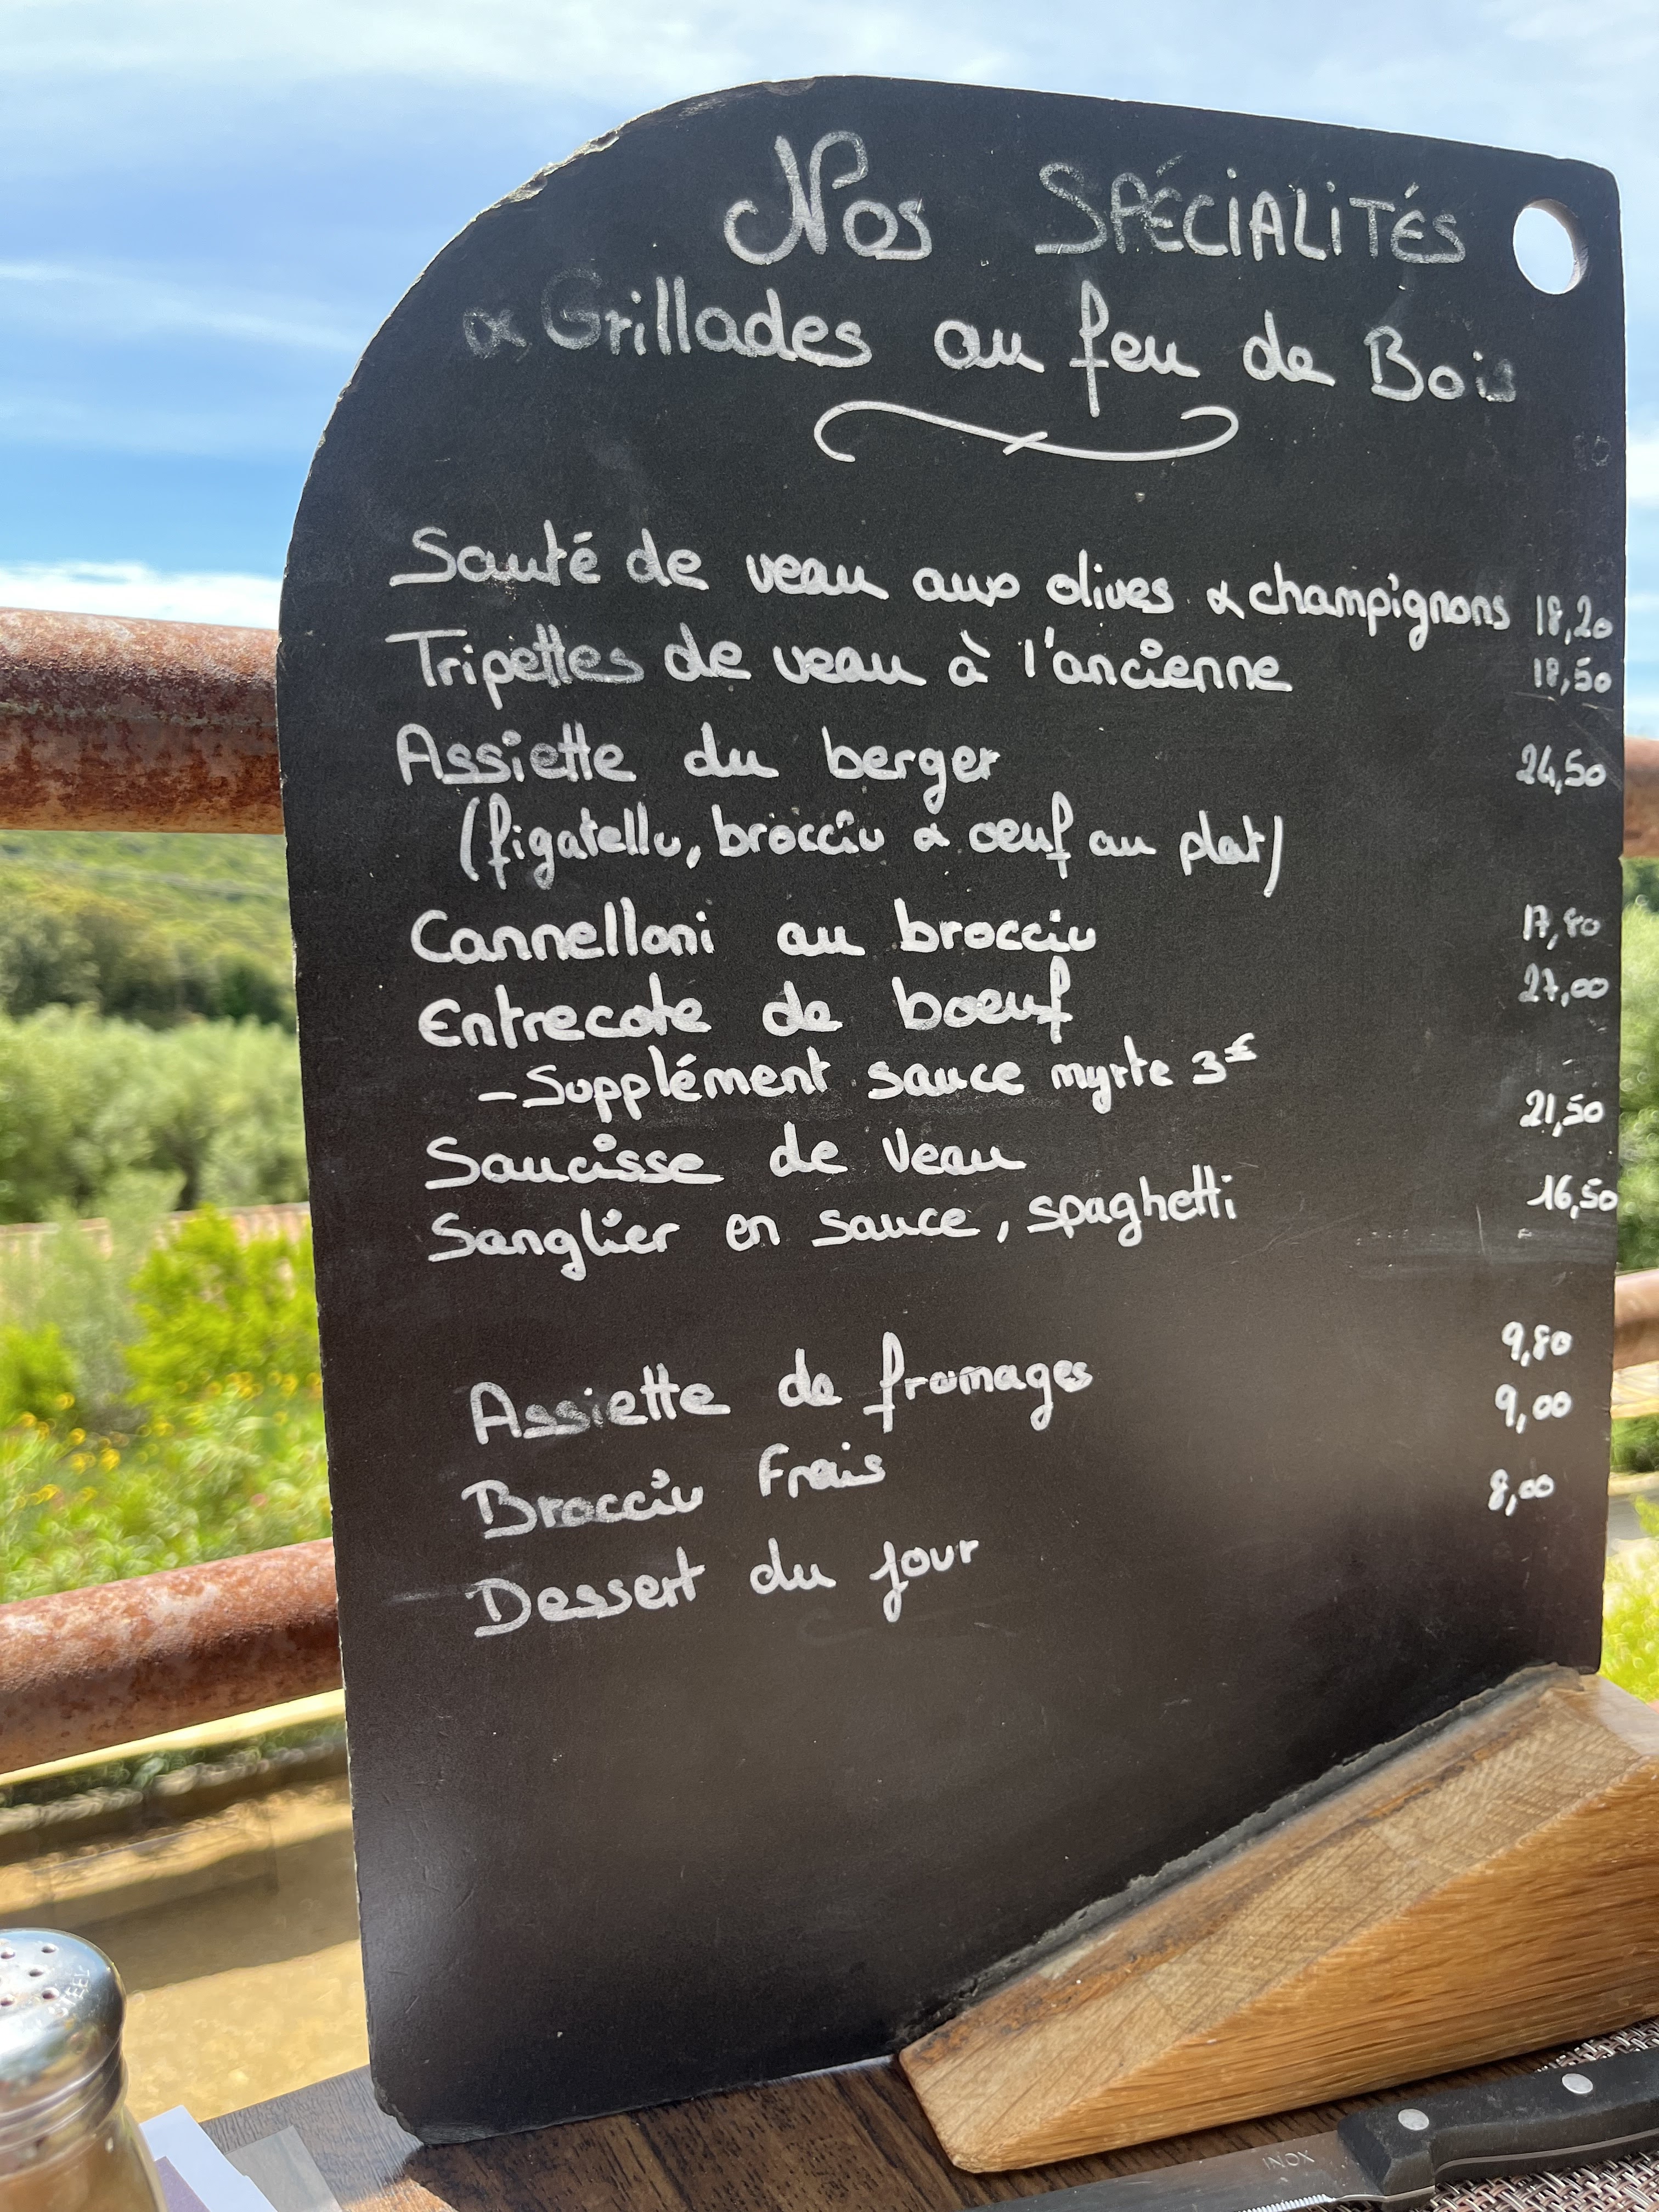 Nos SPÉCIALITÉS
& Grillades au feu de Bois
Sauté de veau aux olives & champignons 18,20
Tripettes de veau à l'ancienne 18,50
Assiette du berger 24,50
(figatellu, brocciu & oeuf au plat)
Cannelloni au brocciu 17,80
Entrecote de boeuf 27,00
- Supplément sauce myrte 3€
Saucisse de veau 21,50
Sanglier en sauce, spaghetti 16,50
Assiette de fromages 9,80
Brocciu frais 9,00
Dessert du jour 8,00
INOX